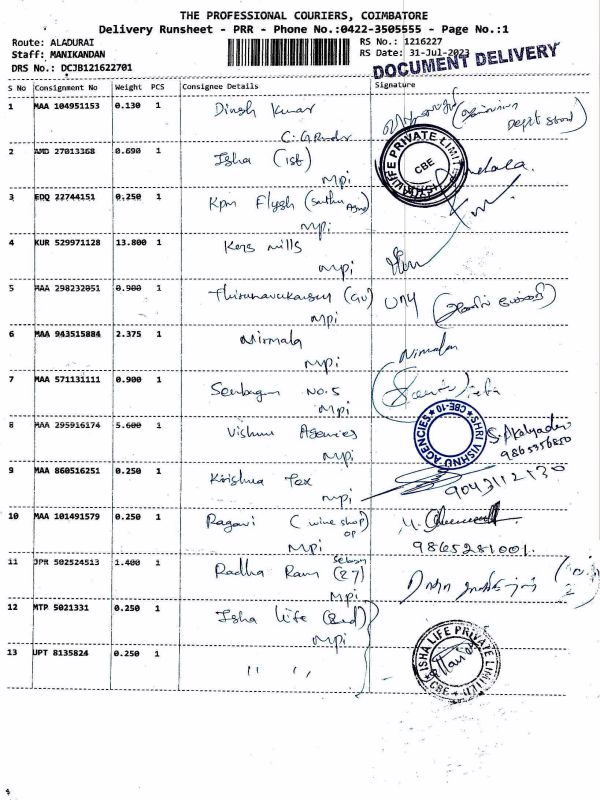 THE PROFESSIONAL COURIERS, COIMBATORE
Delivery Runsheet - PRR - Phone No.:0422-3505555 - Page No.:1
Route: ALADURAI RS No.: 1216227
Staff: MANIKANDAN RS Date: 31-Jul-2023
DRS No.: DCJB121622701 DOCUMENT DELIVERY
S No Consignment No Weight PCS Consignee Details Signature
1 MAA 104951153 0.130 1 Dinesh Kumar
2 AMD 27013368 0.690 1 Isha (1st)
ISHA LIFE PRIVATE LIMITED CBE
MPI
3 EDQ 22744151 0.250 1 Kpm
MPI
4 KUR 529971128 13.800 1 Kers Mills
MPI
5 MAA 298232051 0.900 1
MPI
6 MAA 943515884 2.375 1 Nirmala Nirmala
MPI
7 MAA 571131111 0.900 1 No.5
MPI
8 MAA 295916174 5.600 1 Vishnu Agencies
SHRI VISHNU AGENCIES CBE-10
MPI
9 MAA 860516251 0.250 1 Krishna Tex
MPI 9043112130
10 MAA 101491579 0.250 1 Ragavi (wine shop)
OP
MPI 9865281001.
11 JPR 502524513 1.400 1 Radha Ram (27)
MPI
12 MTP 5021331 0.250 1 Isha life (2nd)
MPI
ISHA LIFE PRIVATE LIMITED CBE
13 UPT 8135824 0.250 1 " "